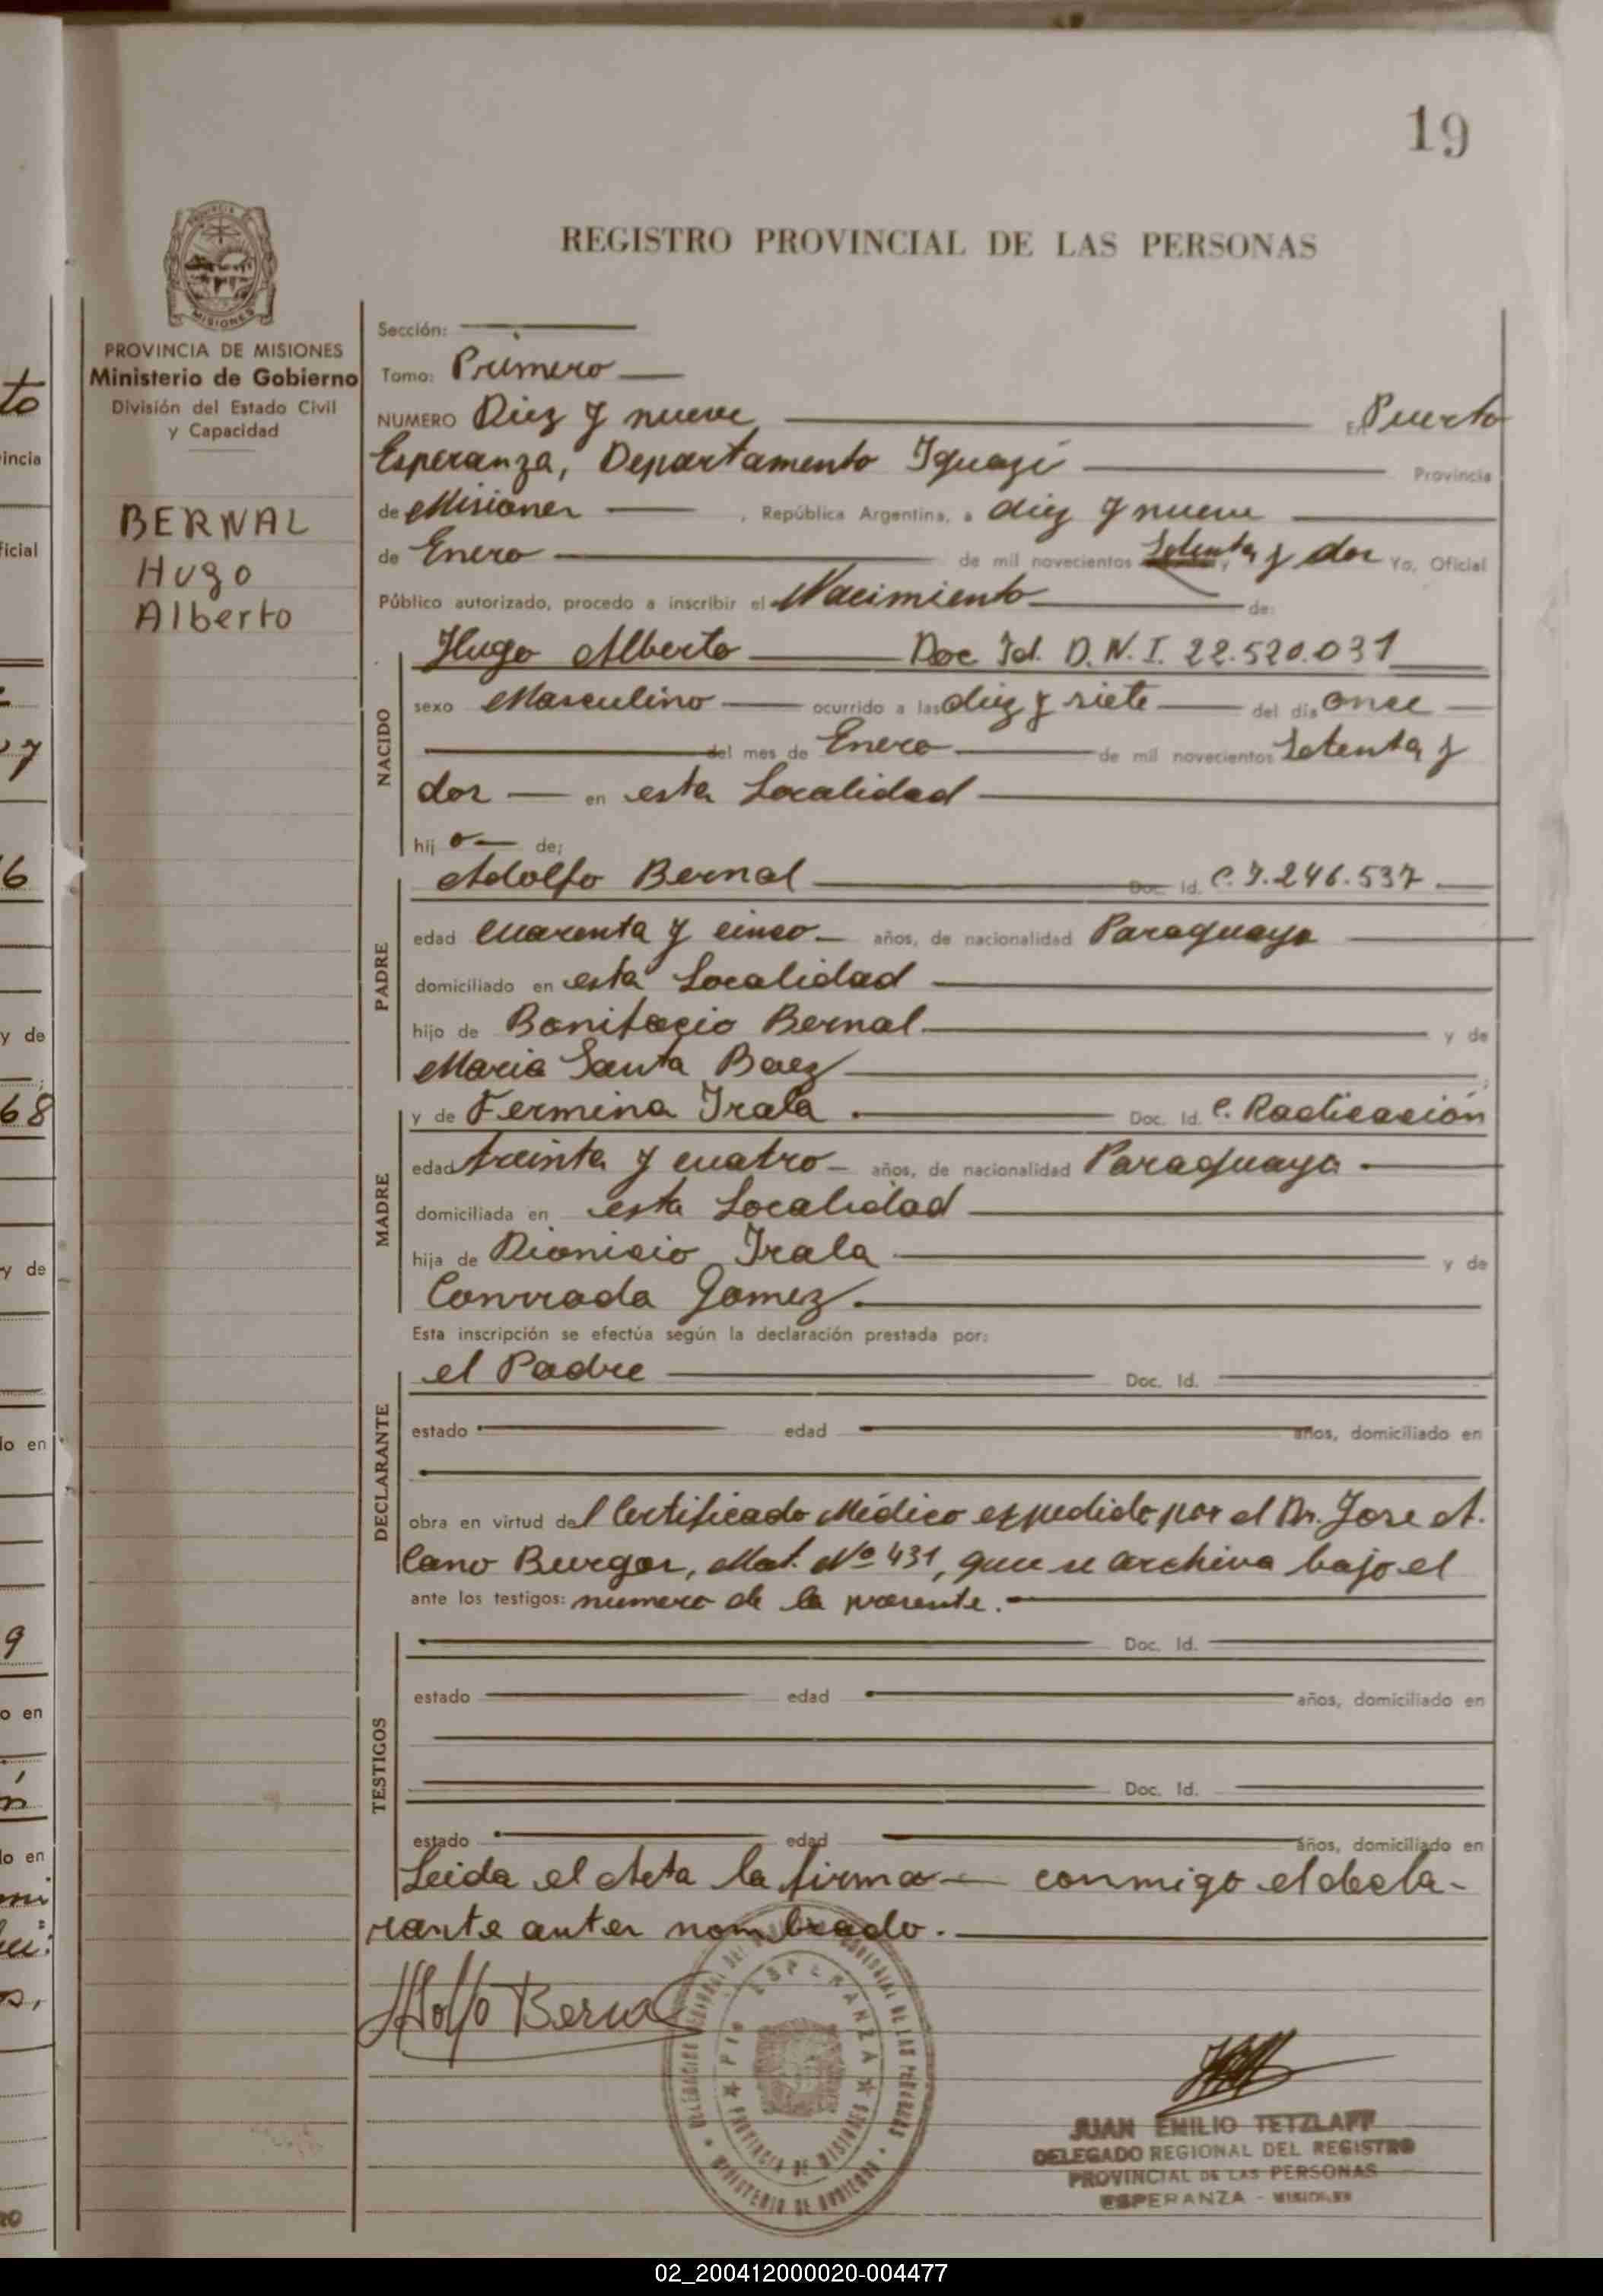 19
REGISTRO PROVINCIAL DE LAS PERSONAS
MISIONES
PROVINCIA DE MISIONES
Ministerio de Gobierno
División del Estado Civil
y Capacidad
BERNAL
Hugo
Alberto
Sección:
Tomo: Primero
NUMERO Diez y nueve En Puerto
Esperanza, Departamento Iguazú Provincia
de Misiones , República Argentina, a diez y nueve
de Enero de mil novecientos Setenta y dos Yo, Oficial
Público autorizado, procedo a inscribir el Nacimiento de:
NACIDO
Hugo Alberto Doc Id. D.N.I. 22.520.031
sexo Masculino ocurrido a las diez y siete del día once
del mes de Enero de mil novecientos Setenta y
dos en esta Localidad
hij o de:
PADRE
Adolfo Bernal Doc. Id. C.I. 246.537
edad cuarenta y cinco años, de nacionalidad Paraguaya
domiciliado en esta Localidad
hijo de Bonifacio Bernal y de
Maria Santa Baez
MADRE
y de Fermina Irala Doc. Id. C. Radicación
edad treinta y cuatro años, de nacionalidad Paraguaya
domiciliada en esta Localidad
hija de Dionicio Irala y de
Conrrada Gomez
Esta inscripción se efectúa según la declaración prestada por:
DECLARANTE
el Padre Doc. Id.
estado edad años, domiciliado en
obra en virtud del Certificado Médico expedido por el Dr. Jose A.
Cano Burgos, Mat. Nº 431, que se archiva bajo el
ante los testigos: numero de la presente.
TESTIGOS
Doc. Id.
estado edad años, domiciliado en
Doc. Id.
estado edad años, domiciliado en
Leida el Acta la firma conmigo el decla-
rante antes nombrado.
Adolfo Bernal
ESPERANZA
PROVINCIA DE MISIONES
MINISTERIO DE GOBIERNO
JUAN EMILIO TETZLAFF
DELEGADO REGIONAL DEL REGISTRO
PROVINCIAL DE LAS PERSONAS
ESPERANZA - MISIONES
02_200412000020-004477